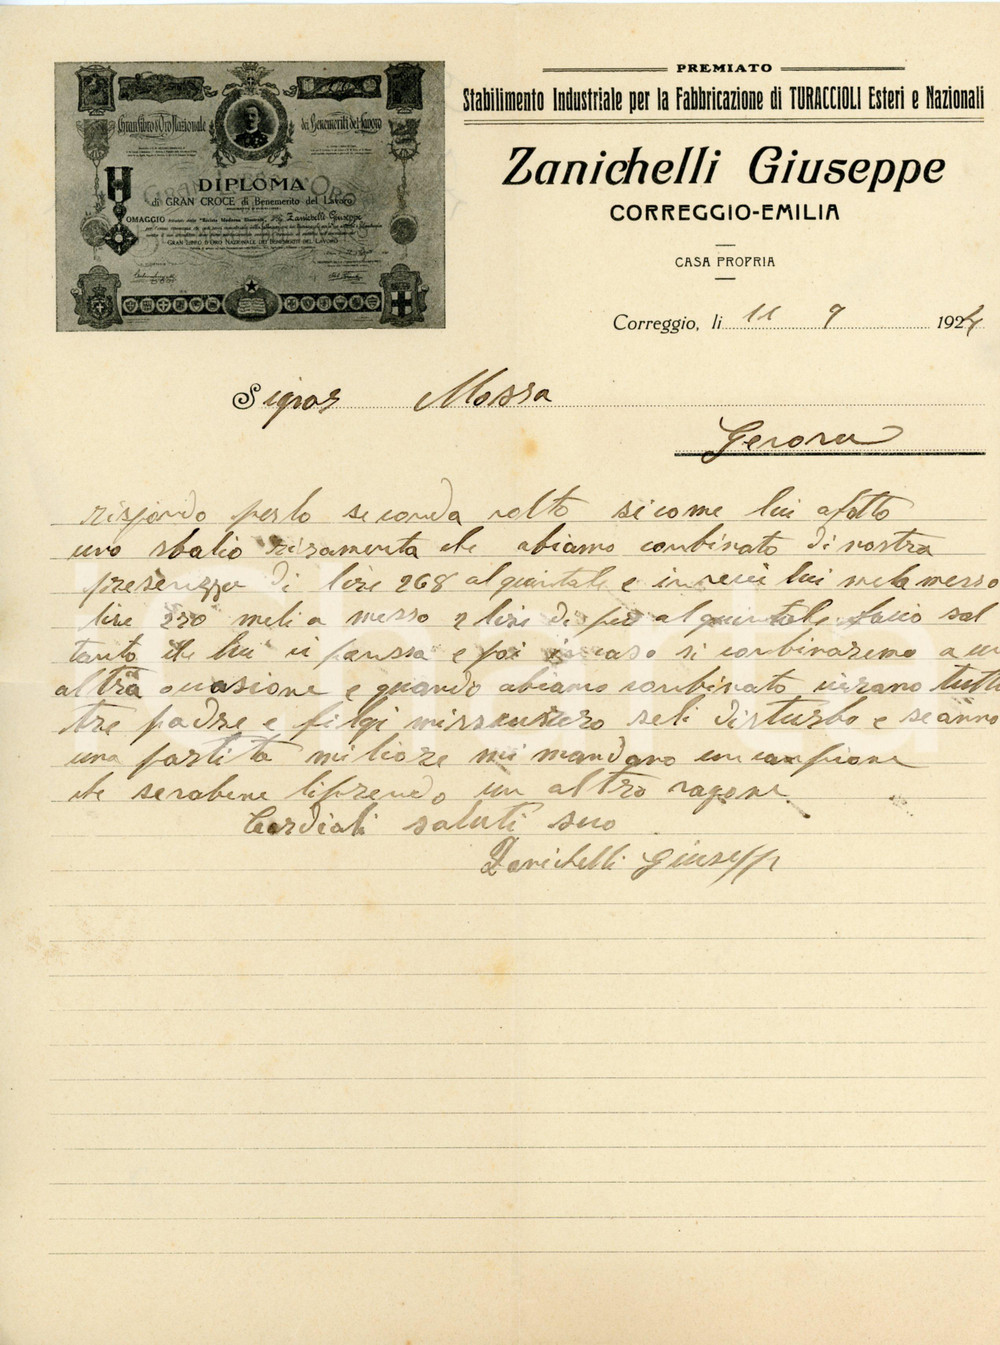 PREMIATO
Stabilimento Industriale per la Fabbricazione di TURACCIOLI Esteri e Nazionali
Zanichelli Giuseppe
CORREGGIO-EMILIA
CASA PROPRIA
Correggio, li 11 9 1924
Gran Libro d'Oro Nazionale dei Benemeriti del Lavoro
DIPLOMA
di GRAN CROCE di Benemerito del Lavoro
OMAGGIO Zanichelli Giuseppe
GRAN LIBRO D'ORO NAZIONALE DEI BENEMERITI DEL LAVORO
Signor Massa
Genova
rispondo perlo seconda volto sicome lui afatto
uno sbalio che abiamo conbinato di nostra
presenzza di lire 268 al quintale e invecii lui mela messo
lire 270 meli a messo 2 lire di più al quintale facio sal
tanto che lui ci panssa e poi in caso si conbinaremo a un
altra ocuasione e quando abiamo conbinato cierano tutti
tre padre e filgi seli disturbo e seanno
una partita miliore mi mandano un canpione
che serabene liprendo un altro vagone
Cordiali saluti suo
Zanichelli Giuseppe